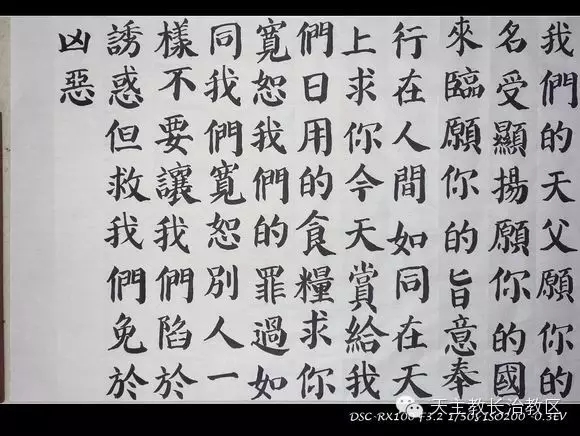 我們的天父願你的
名受顯揚願你的國
來臨願你的旨意奉
行在人間如同在天
上求你今天賞給我
們日用的食糧求你
寬恕我們的罪過如
同我們寬恕別人一
樣不要讓我們陷於
誘惑但救我們免於
凶惡
DSC-RX100 f3.2 1/50s ISO200 -0.3EV
天主教长治教区